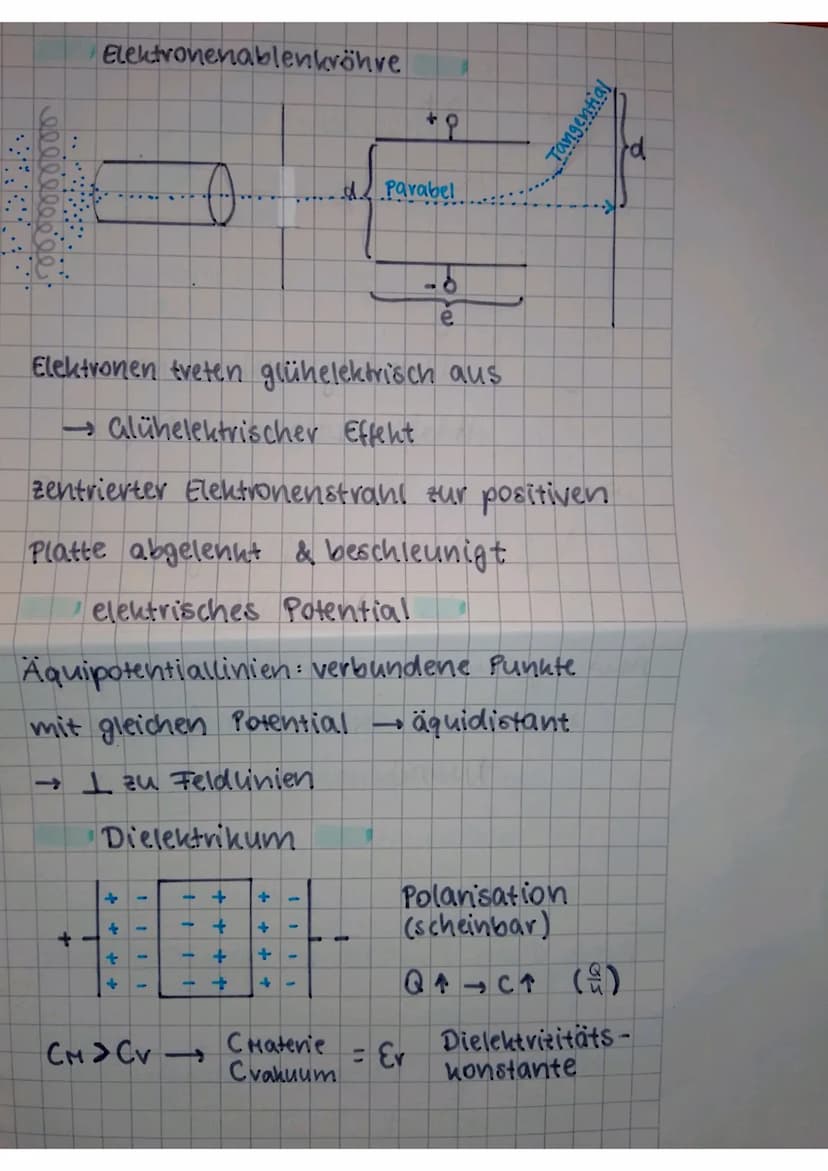 Elektronenablenkröhre
+
Tangential
d
d
Parabel
-
e
Elektronen treten glühelektrisch aus
→ Glühelektrischer Effekt
zentrierter Elektronenstrahl zur positiven
Platte abgelenkt & beschleunigt
elektrisches Potential
Äquipotentiallinien: verbundene Punkte
mit gleichen Potential → äquidistant
→ ⊥ zu Feldlinien
Dielektrikum
+ - - + + -
+ - - + + -
+ - - + + -
+ - - + + -
+ -
Polarisation
(scheinbar)
Q ↑ → C ↑ (Q/U)
CM > CV → CMaterie / CVakuum = εr Dielektrizitäts-
konstante